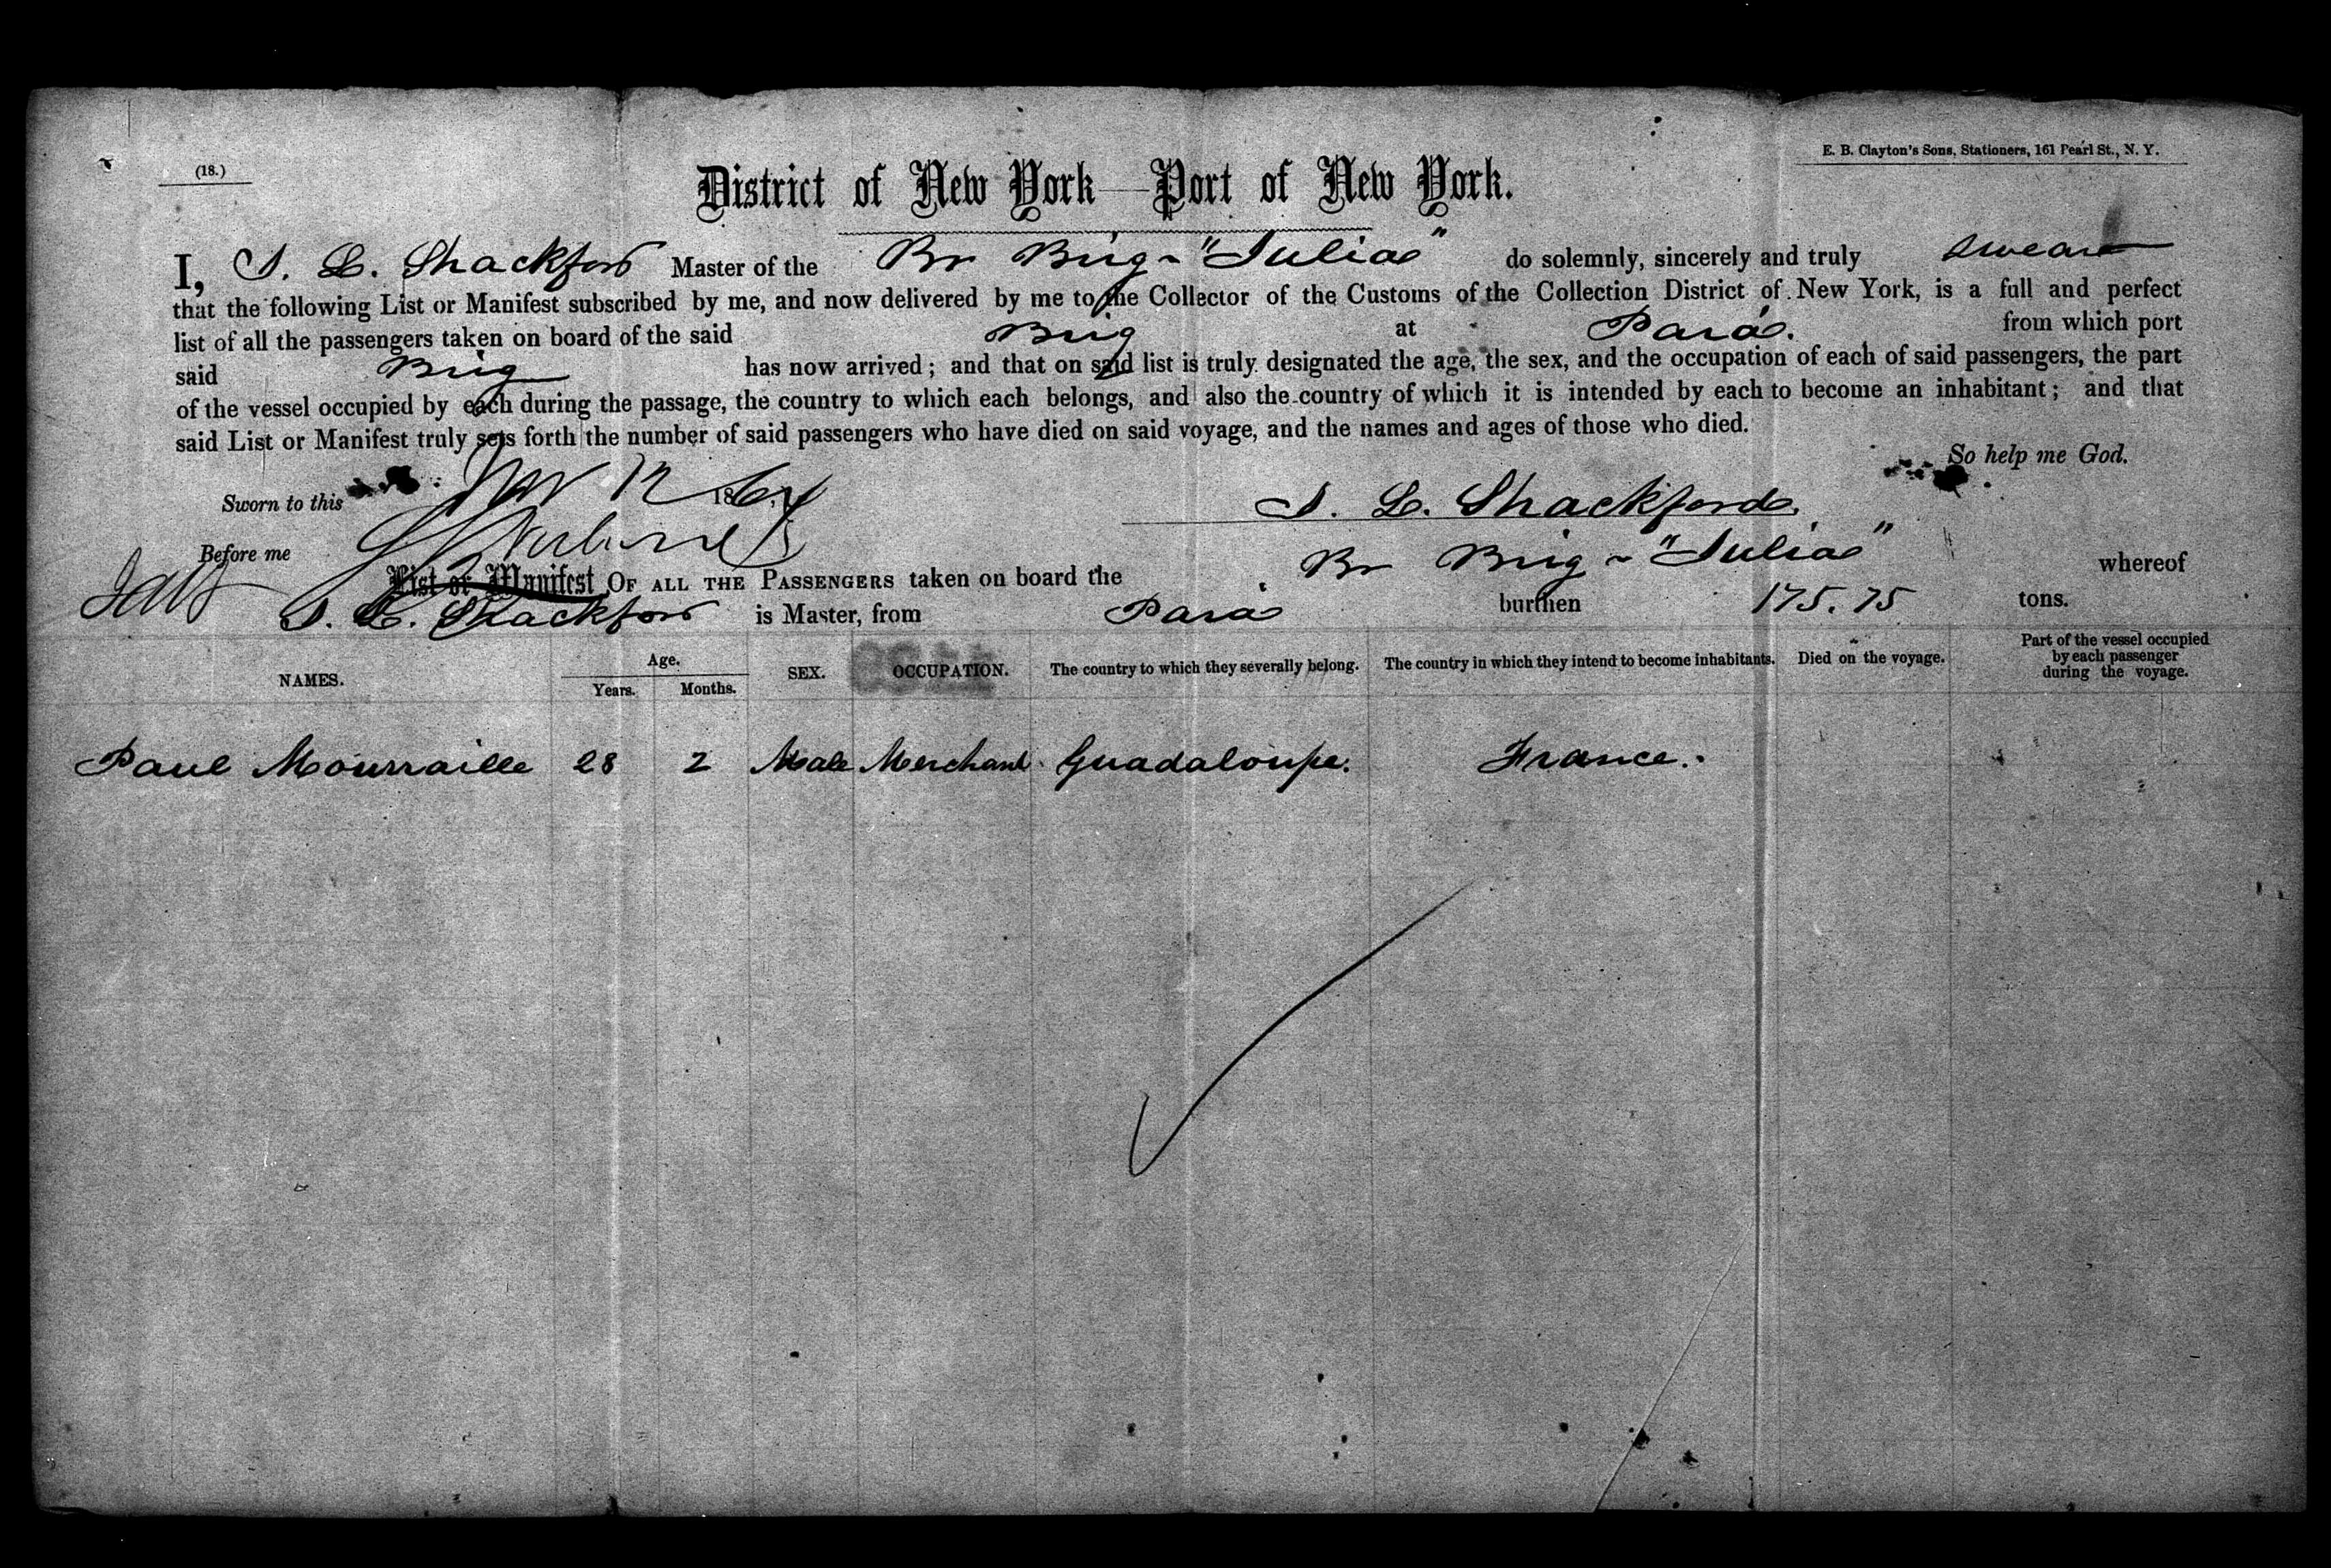 (18.)
E. B. Clayton's Sons, Stationers, 161 Pearl St., N. Y.
District of New York—Port of New York.
I, S. L. Shackford Master of the Br Brig "Julia" do solemnly, sincerely and truly swear
that the following List or Manifest subscribed by me, and now delivered by me to the Collector of the Customs of the Collection District of New York, is a full and perfect
list of all the passengers taken on board of the said Brig at Pará. from which port
said Brig has now arrived; and that on said list is truly designated the age, the sex, and the occupation of each of said passengers, the part
of the vessel occupied by each during the passage, the country to which each belongs, and also the country of which it is intended by each to become an inhabitant; and that
said List or Manifest truly sets forth the number of said passengers who have died on said voyage, and the names and ages of those who died.
So help me God.
Sworn to this Nov 12 186
S. L. Shackford.
Before me
List or Manifest OF ALL THE PASSENGERS taken on board the Br Brig "Julia" whereof
S. L. Shackford is Master, from Pará burthen 175.75 tons.
NAMES. Age. Years. Months. SEX. OCCUPATION. The country to which they severally belong. The country in which they intend to become inhabitants. Died on the voyage. Part of the vessel occupied by each passenger during the voyage.
Paul Mourraille 28 2 Male Merchant Guadaloupe. France.